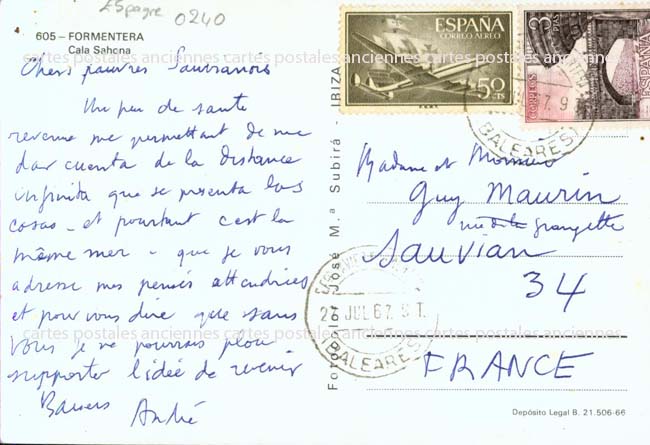 Espagne 0240
605 – FORMENTERA
Cala Sahona
Chers pauvres Sauvianois
Un peu de santé
revenue me permettant de me
dar cuenta de la distance
infinita que se presenta las
cosas – et pourtant c'est la
même mer – que je vous
adresse mes pensées attendries
et pour vous dire que sans
vous je ne pourrais plus
supporter l'idée de revenir
Baisers André
Fotografía José M.ª Subirá - IBIZA
ESPAÑA
CORREO AEREO
50 CTS
F.N.M.T.
3 PTAS
CORREOS
ESPAÑA
BALEARES
27 JUL 67 S.T.
BALEARES
Madame et Monsieur
Guy Maurin
grangette
Sauvian
34
FRANCE
Depósito Legal B. 21.506-66
cartes postales anciennes cartes postales anciennes cartes postales anciennes
cartes postales anciennes cartes postales anciennes cartes postales anciennes